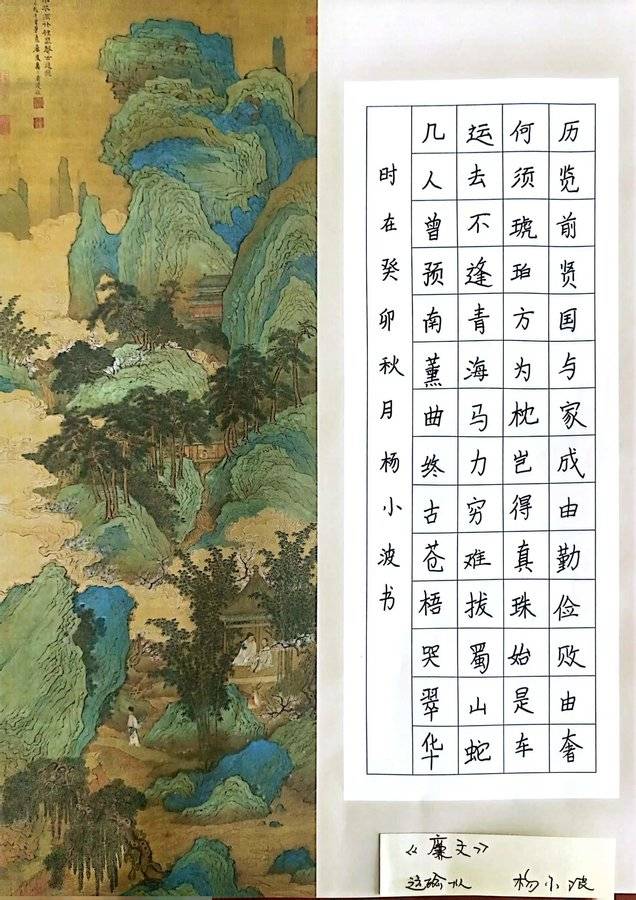 历览前贤国与家成由勤俭败由奢
何须琥珀方为枕岂得真珠始是车
运去不逢青海马力穷难拔蜀山蛇
几人曾预南薰曲终古苍梧哭翠华
时在癸卯秋月杨小波书
《廉文》
杨小波